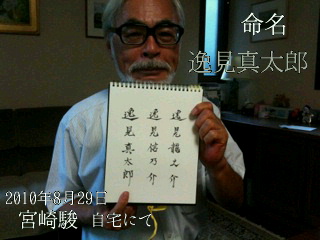 命名
逸見真太郎
逸見龍之介
逸見佑乃介
逸見真太郎
2010年8月29日
宮崎駿 自宅にて